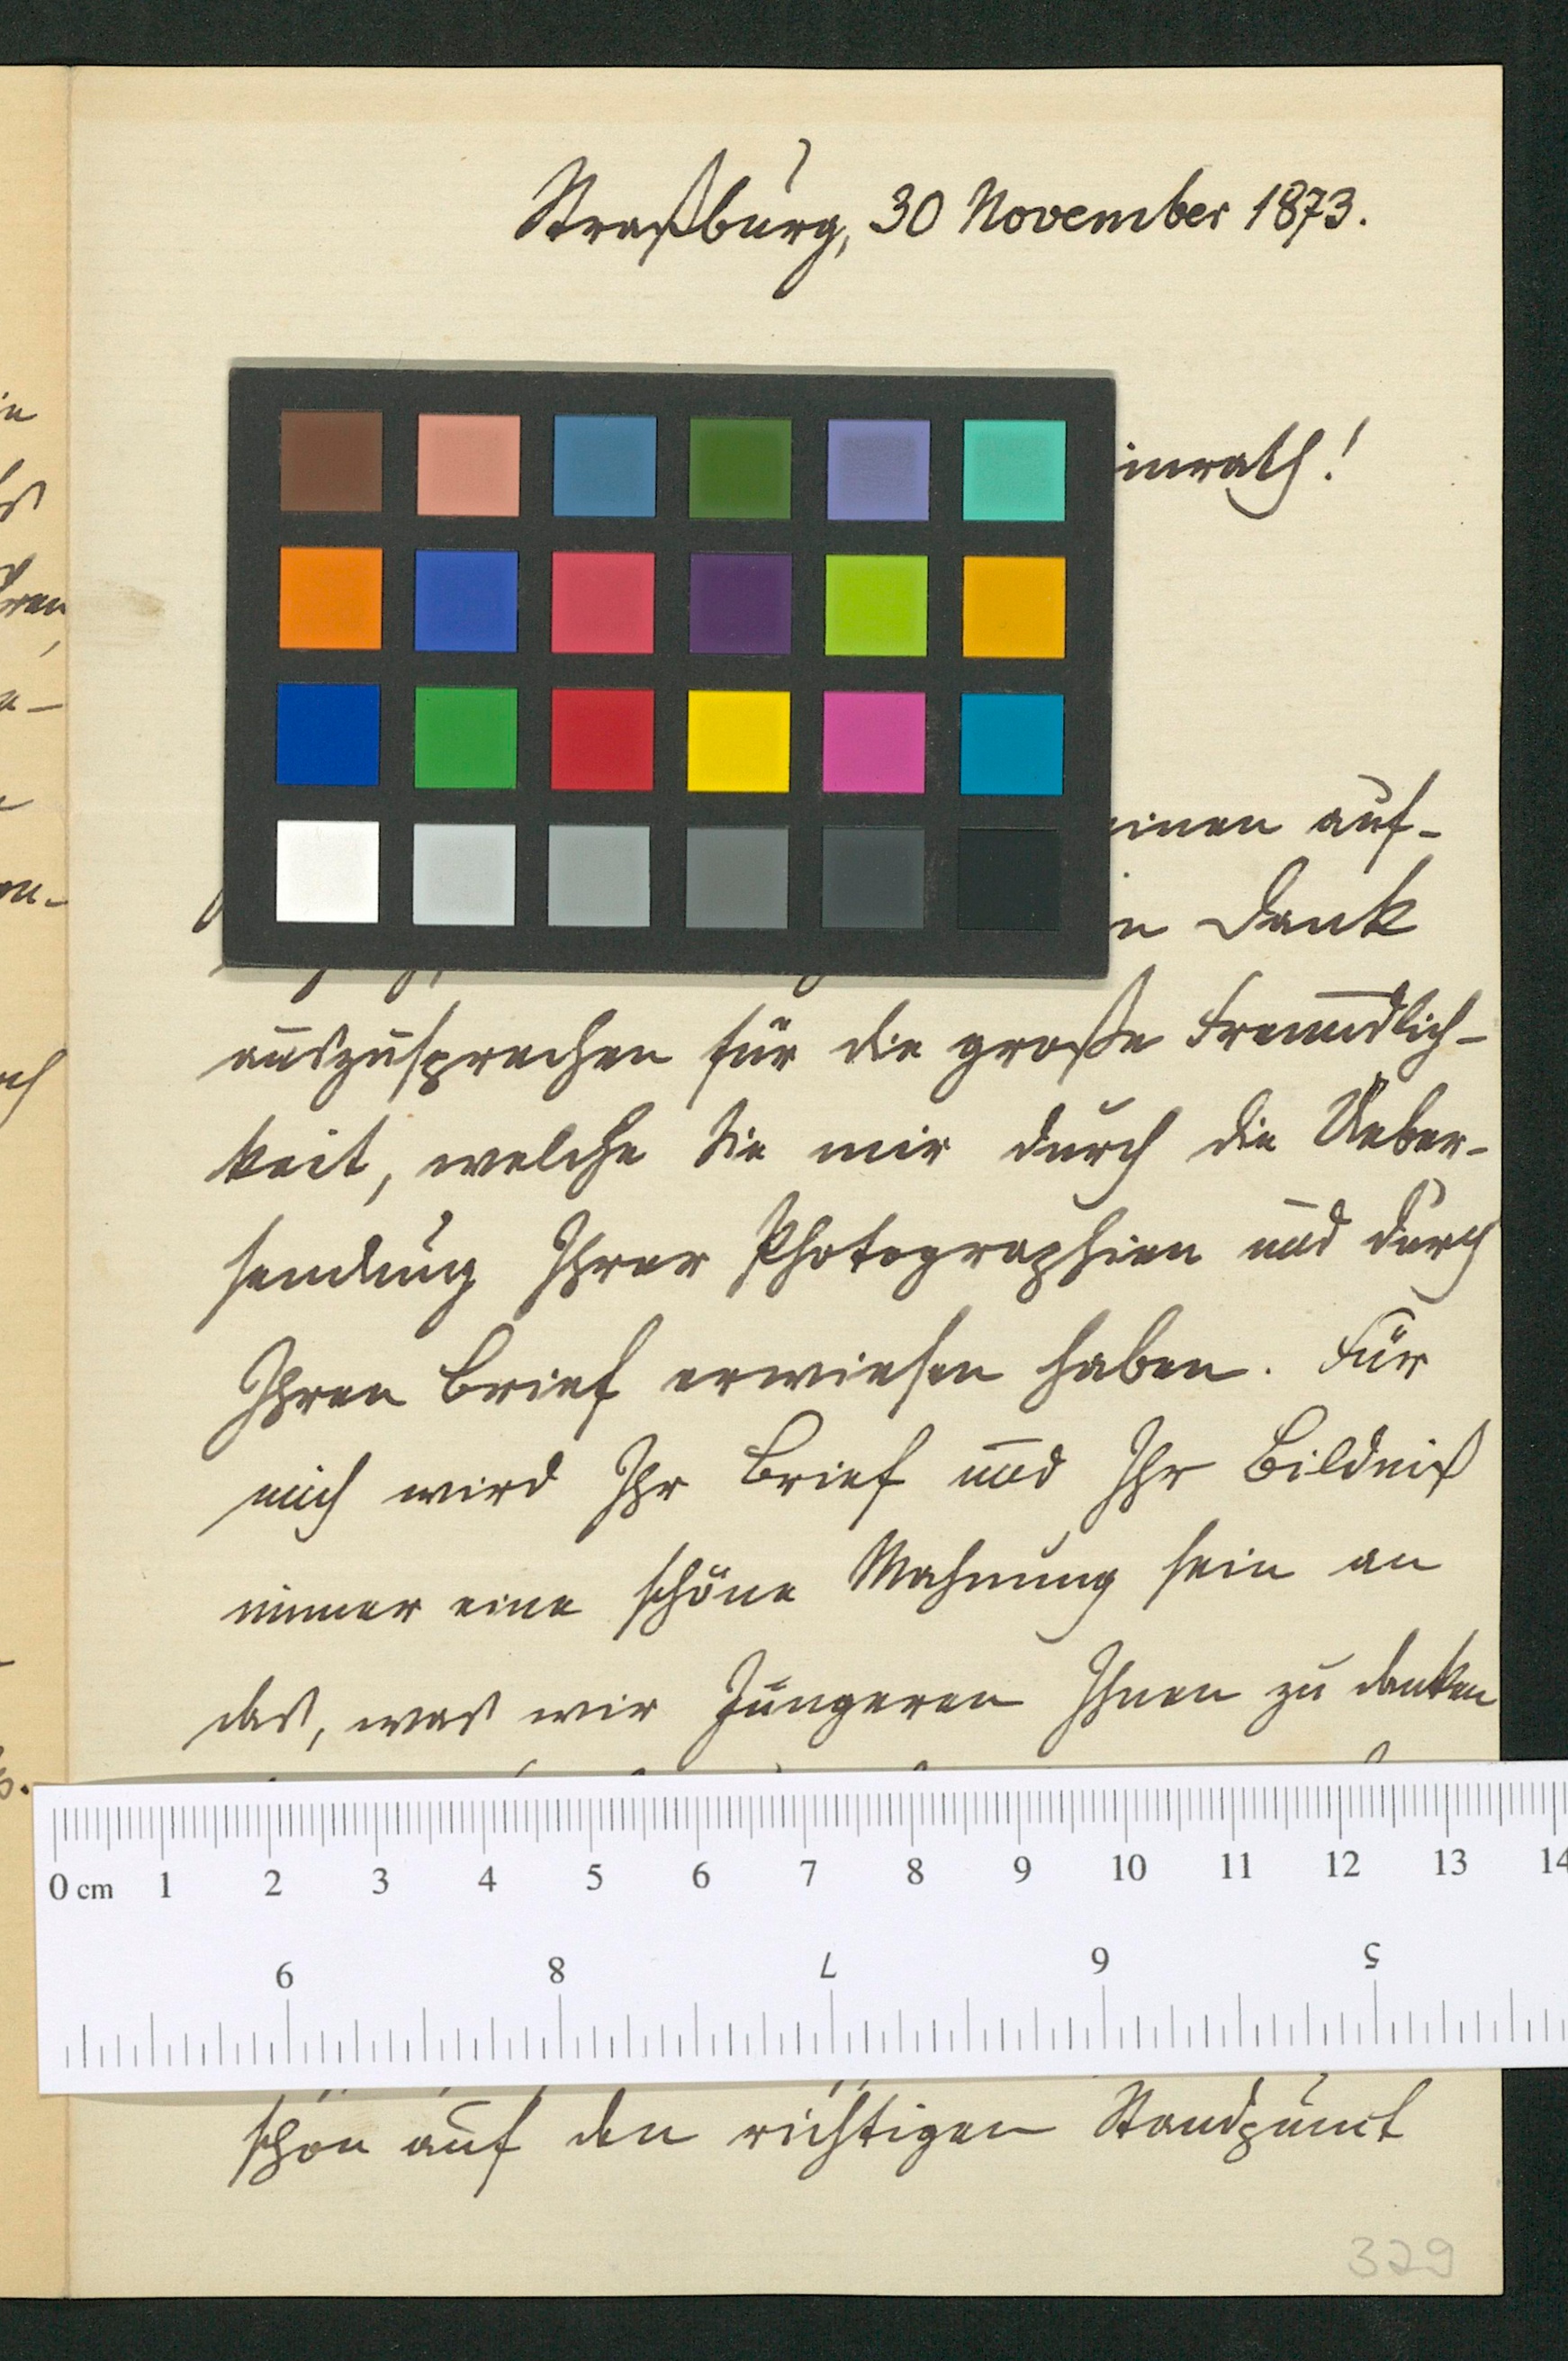 Straßburg, 30 November 1873.
imrath!
einen auf-
n Dank
auszusprechen für die große Freundlich-
keit, welche Sie mir durch die Ueber-
sendung Ihrer Photographien und durch
Ihren Brief erwiesen haben. Für
mich wird Ihr Brief und Ihr Bildniß
immer eine schöne Mahnung sein an
das, was wir Jüngeren Ihnen zu danken
0 cm 1 2 3 4 5 6 7 8 9 10 11 12 13 14
9 8 7 6 5
schon auf den richtigen Standpunct
329